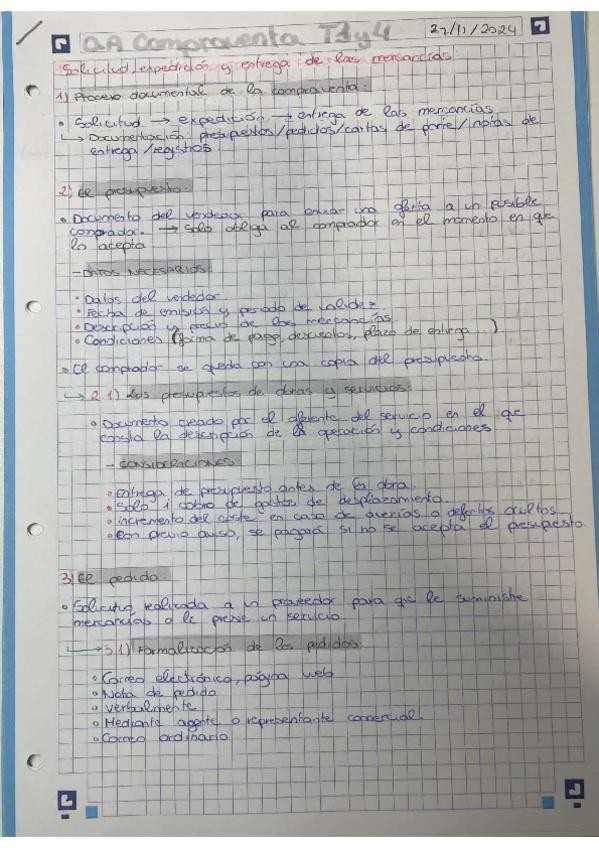 OA Compraventa T3 y 4 27/11/2024
Solicitud, expedición y entrega de las mercancías.
1) Proceso documental de la compraventa.
• Solicitud → expedición → entrega de las mercancías
↳ Documentación presupuestos/pedidos/cartas de porte/notas de
entrega/registros.
2) El presupuesto.
• Documento del vendedor para enviar una oferta a un posible
comprador. → Solo obliga al comprador en el momento en que
lo acepta
- DATOS NECESARIOS
• Datos del vendedor
• Fecha de emisión y periodo de validez
• Descripción y precios de las mercancías.
• Condiciones (forma de pago, descuentos, plazo de entrega ...)
• El comprador se queda con una copia del presupuesto.
↳ 2.1) Los presupuestos de obras y servicios.
• Documento creado por el oferente del servicio en el que
consta la descripción de la operación y condiciones
- CONSIDERACIONES
• Entrega de presupuesto antes de la obra.
• Solo 1 cobro de gastos de desplazamiento
• incremento del coste en caso de averías o defectos ocultos.
• Con previo aviso, se pagará si no se acepta el presupuesto.
3) El pedido.
• Solicitud realizada a un proveedor para que le suministre
mercancías o le preste un servicio
↳ 3.1) Formalización de los pedidos
• Correo electrónico, página web
• Nota de pedido
• Verbalmente
• Mediante agente o representante comercial.
• Correo ordinario